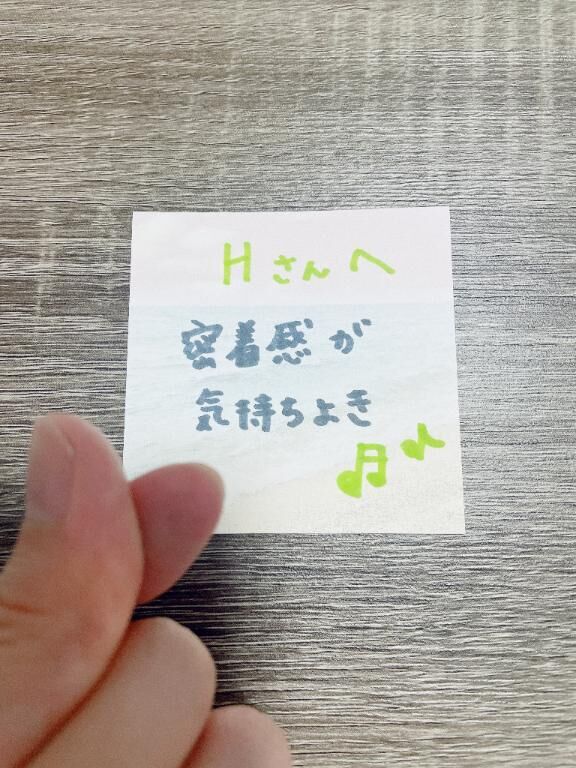 Hさんへ
密着感が
気持ちよき